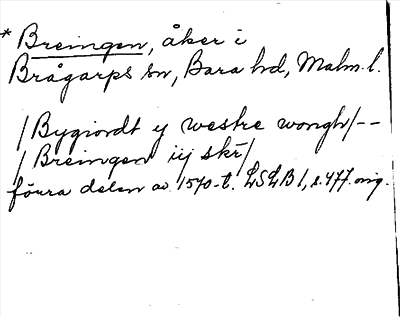 * Breingen, åker i
Brågarps sn, Bara hd, Malm. l.
/Bygiondt y westre wongh/--
/Breingen iij skr/
förra delen av 1570-t. LSLB 1, s. 477. orig.